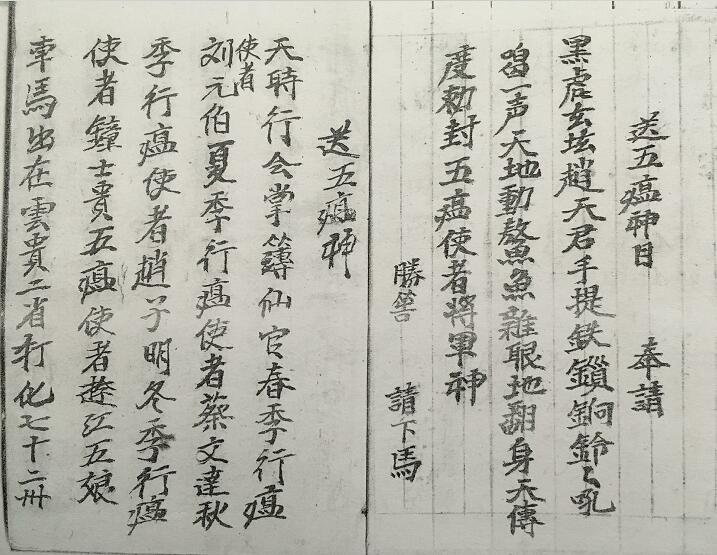 送五瘟神目 奉請
黑虎玄坛趙天君手提鉄鎖响鈴々吼
喝一声天地動鰲魚雜眼地翻身天傳
度勅封五瘟使者將軍神
勝筶 請下馬
送五瘟神
天時行会掌簿仙官春季行瘟
使者
刘元伯夏季行瘟使者蔡文達秋
季行瘟使者趙子明冬季行瘟
使者鐘士貴五瘟使者趙江五娘
車馬出在雲貴二省打化七十二州